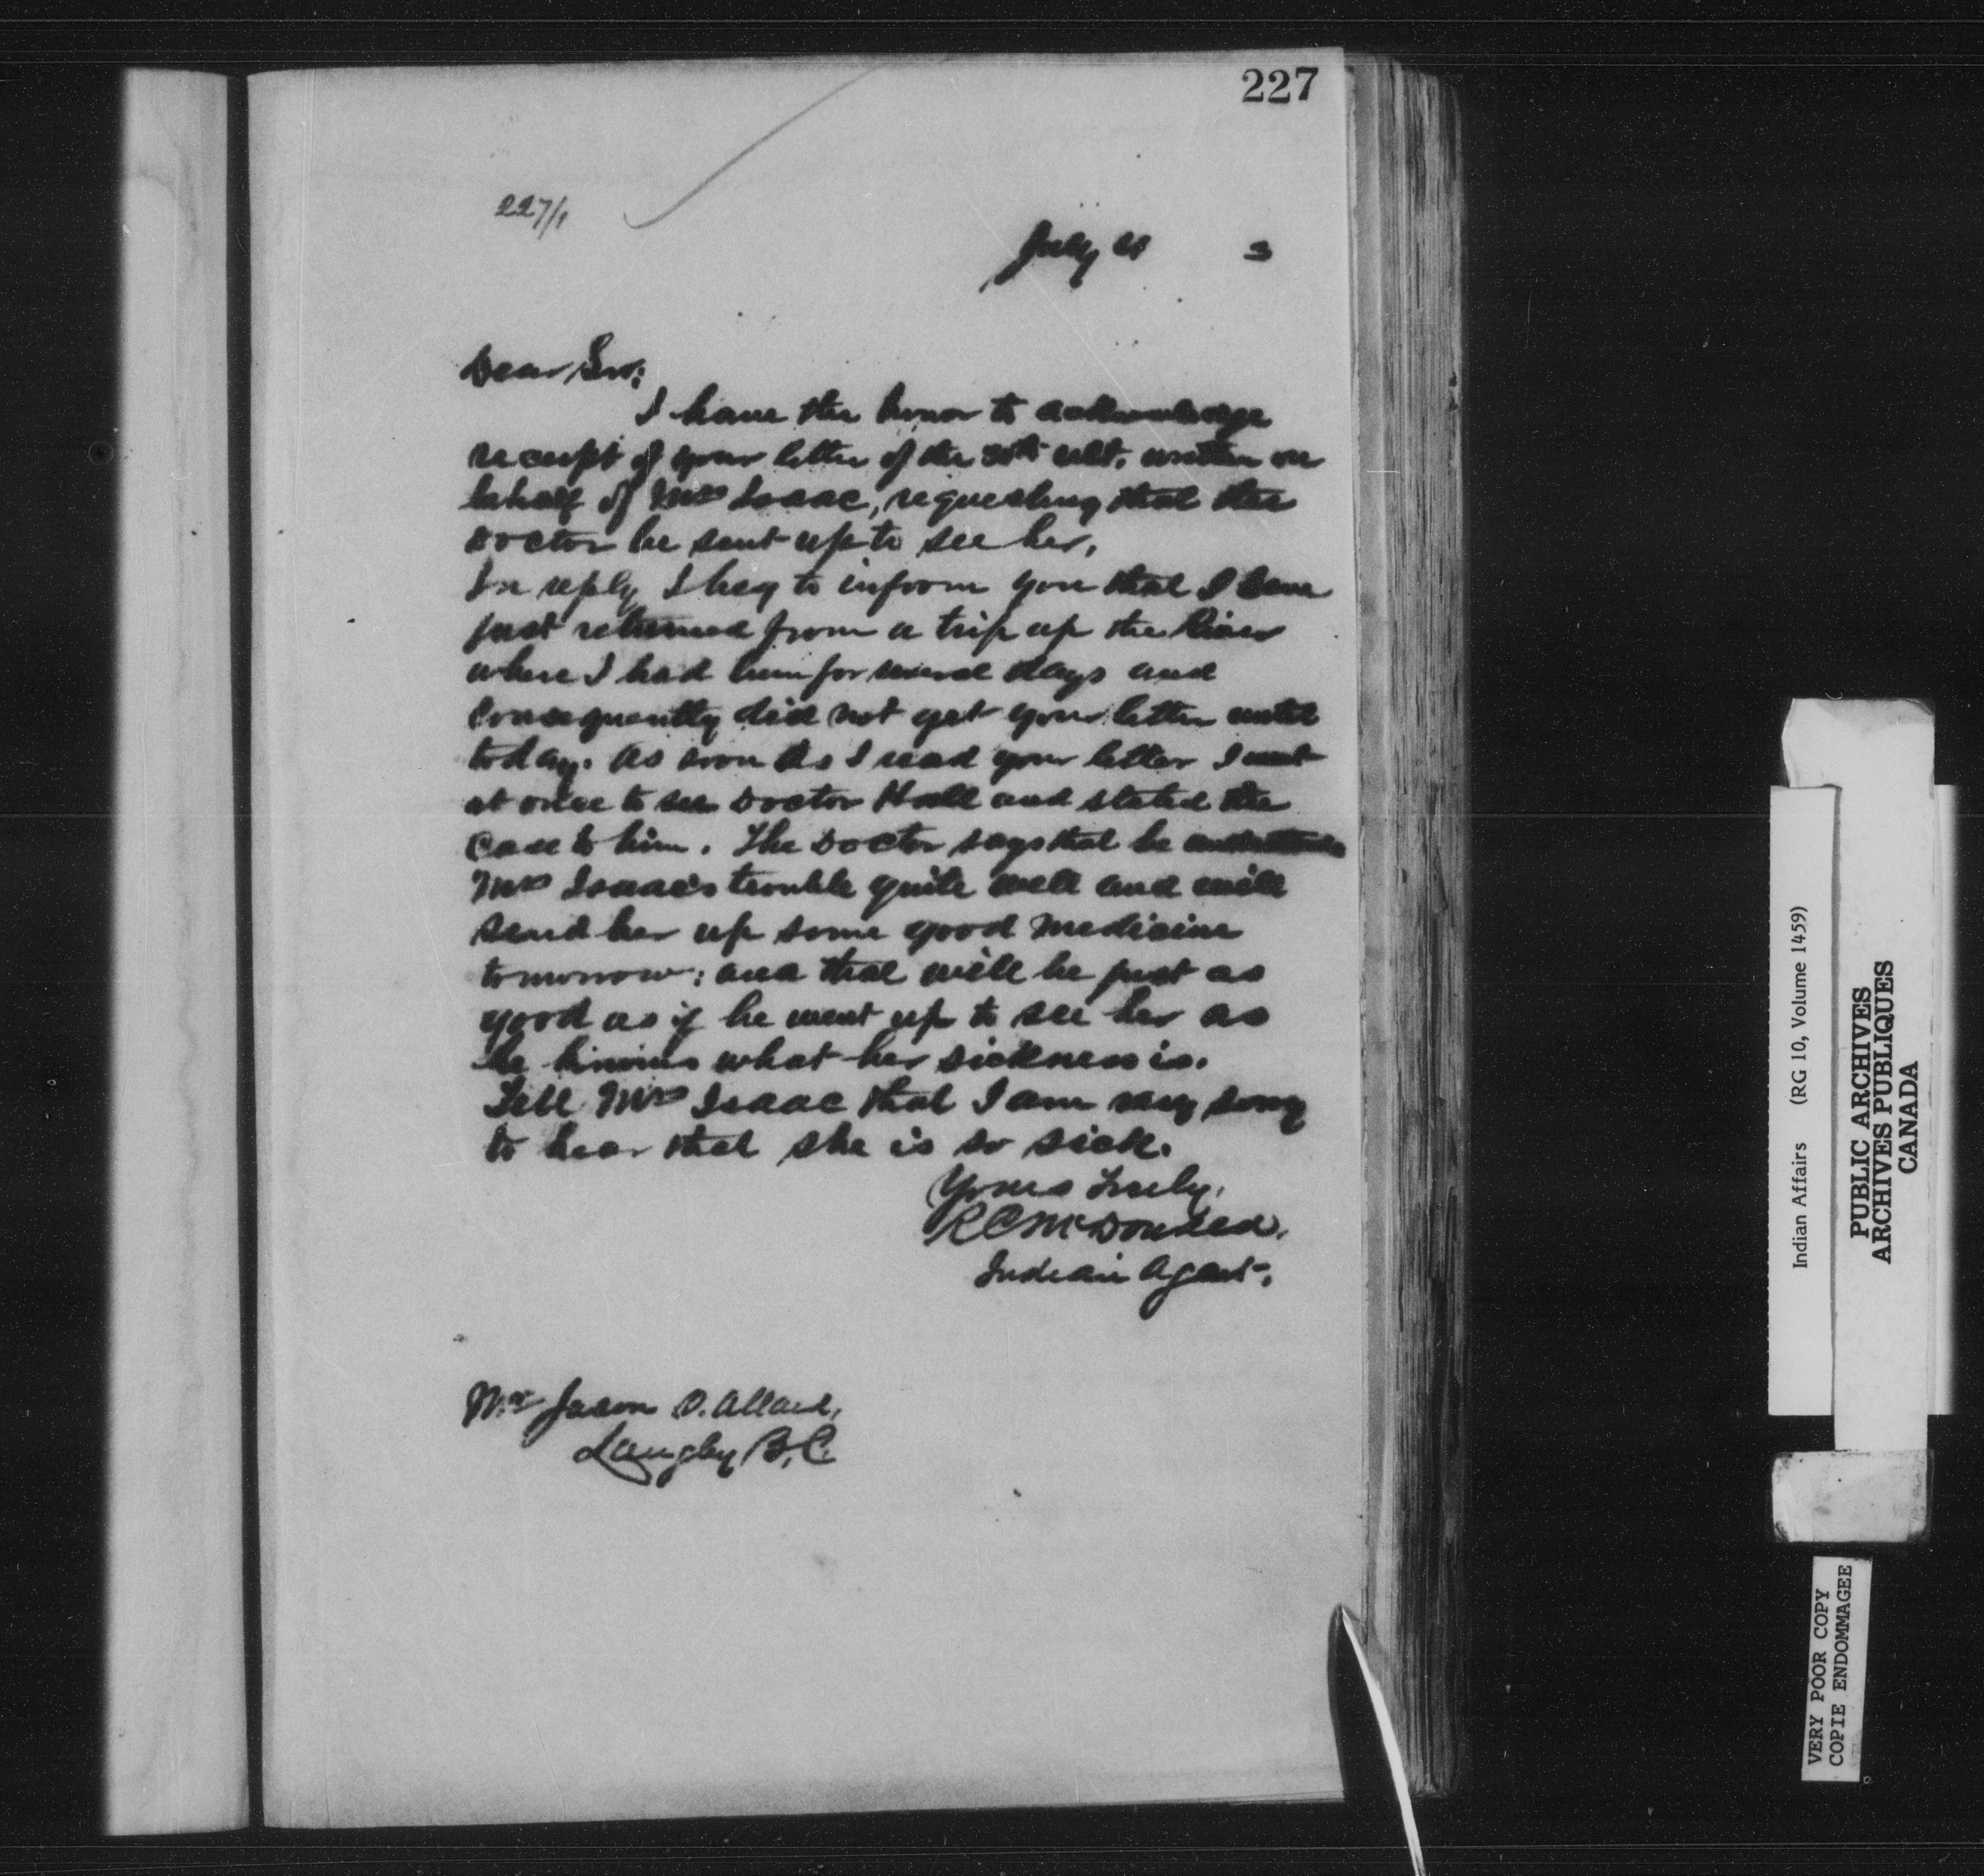 227
227/1
July 3
Dear Sir;
I have the honor to acknowledge
receipt of your letter of the 30th ult. written on
behalf of Mrs Isaac, requesting that the
Doctor be sent up to see her,
In reply I beg to inform you that I have
just returned from a trip up the River
where I had been for several days and
Consequently did not get your letter until
today. As soon as I read your letter I went
at once to see Doctor Hall and stated the
case to him. The Doctor says that he understands
Mrs Isaac's trouble quite well and will
send her up some good medicine
tomorrow; and that will be just as
good as if he went up to see her as
he knows what her sickness is.
Tell Mrs Isaac that I am very sorry
to hear that she is so sick.
Yours Truly,
R C McDonald.
Indian Agent.
Mr Jason O. Allard,
Langley B.C.
Indian Affairs (RG 10, Volume 1459)
PUBLIC ARCHIVES
ARCHIVES PUBLIQUES
CANADA
VERY POOR COPY
COPIE ENDOMMAGEE